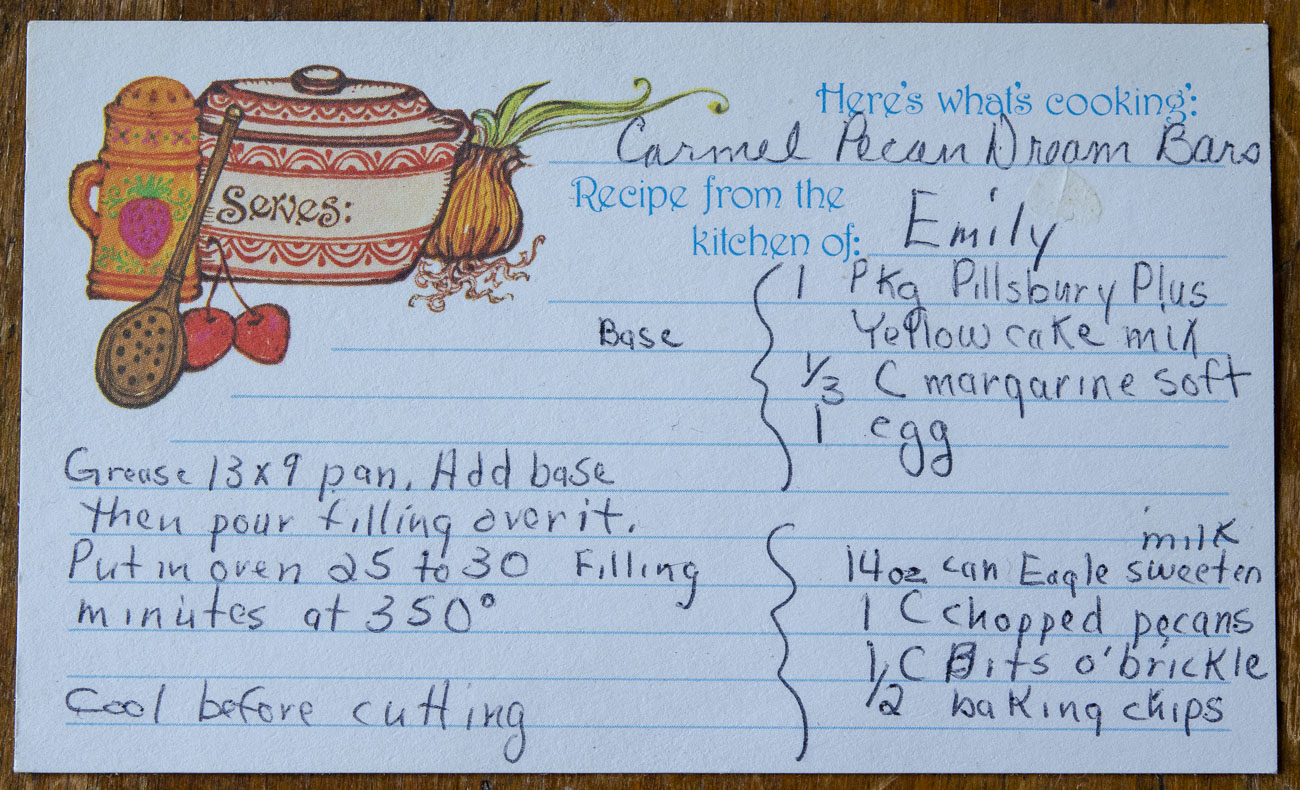 Here's what's cooking:
Carmel Pecan Dream Bars
Serves:
Recipe from the
kitchen of: Emily
Base
1 Pkg Pillsbury Plus
Yellow cake mix
1/3 C margarine soft
1 egg
Grease 13x9 pan. Add base
then pour filling over it.
Put in oven 25 to 30
minutes at 350°
Cool before cutting
Filling
milk
14oz can Eagle sweeten
1 C chopped pecans
1/2 C Bits o'brickle
baking chips